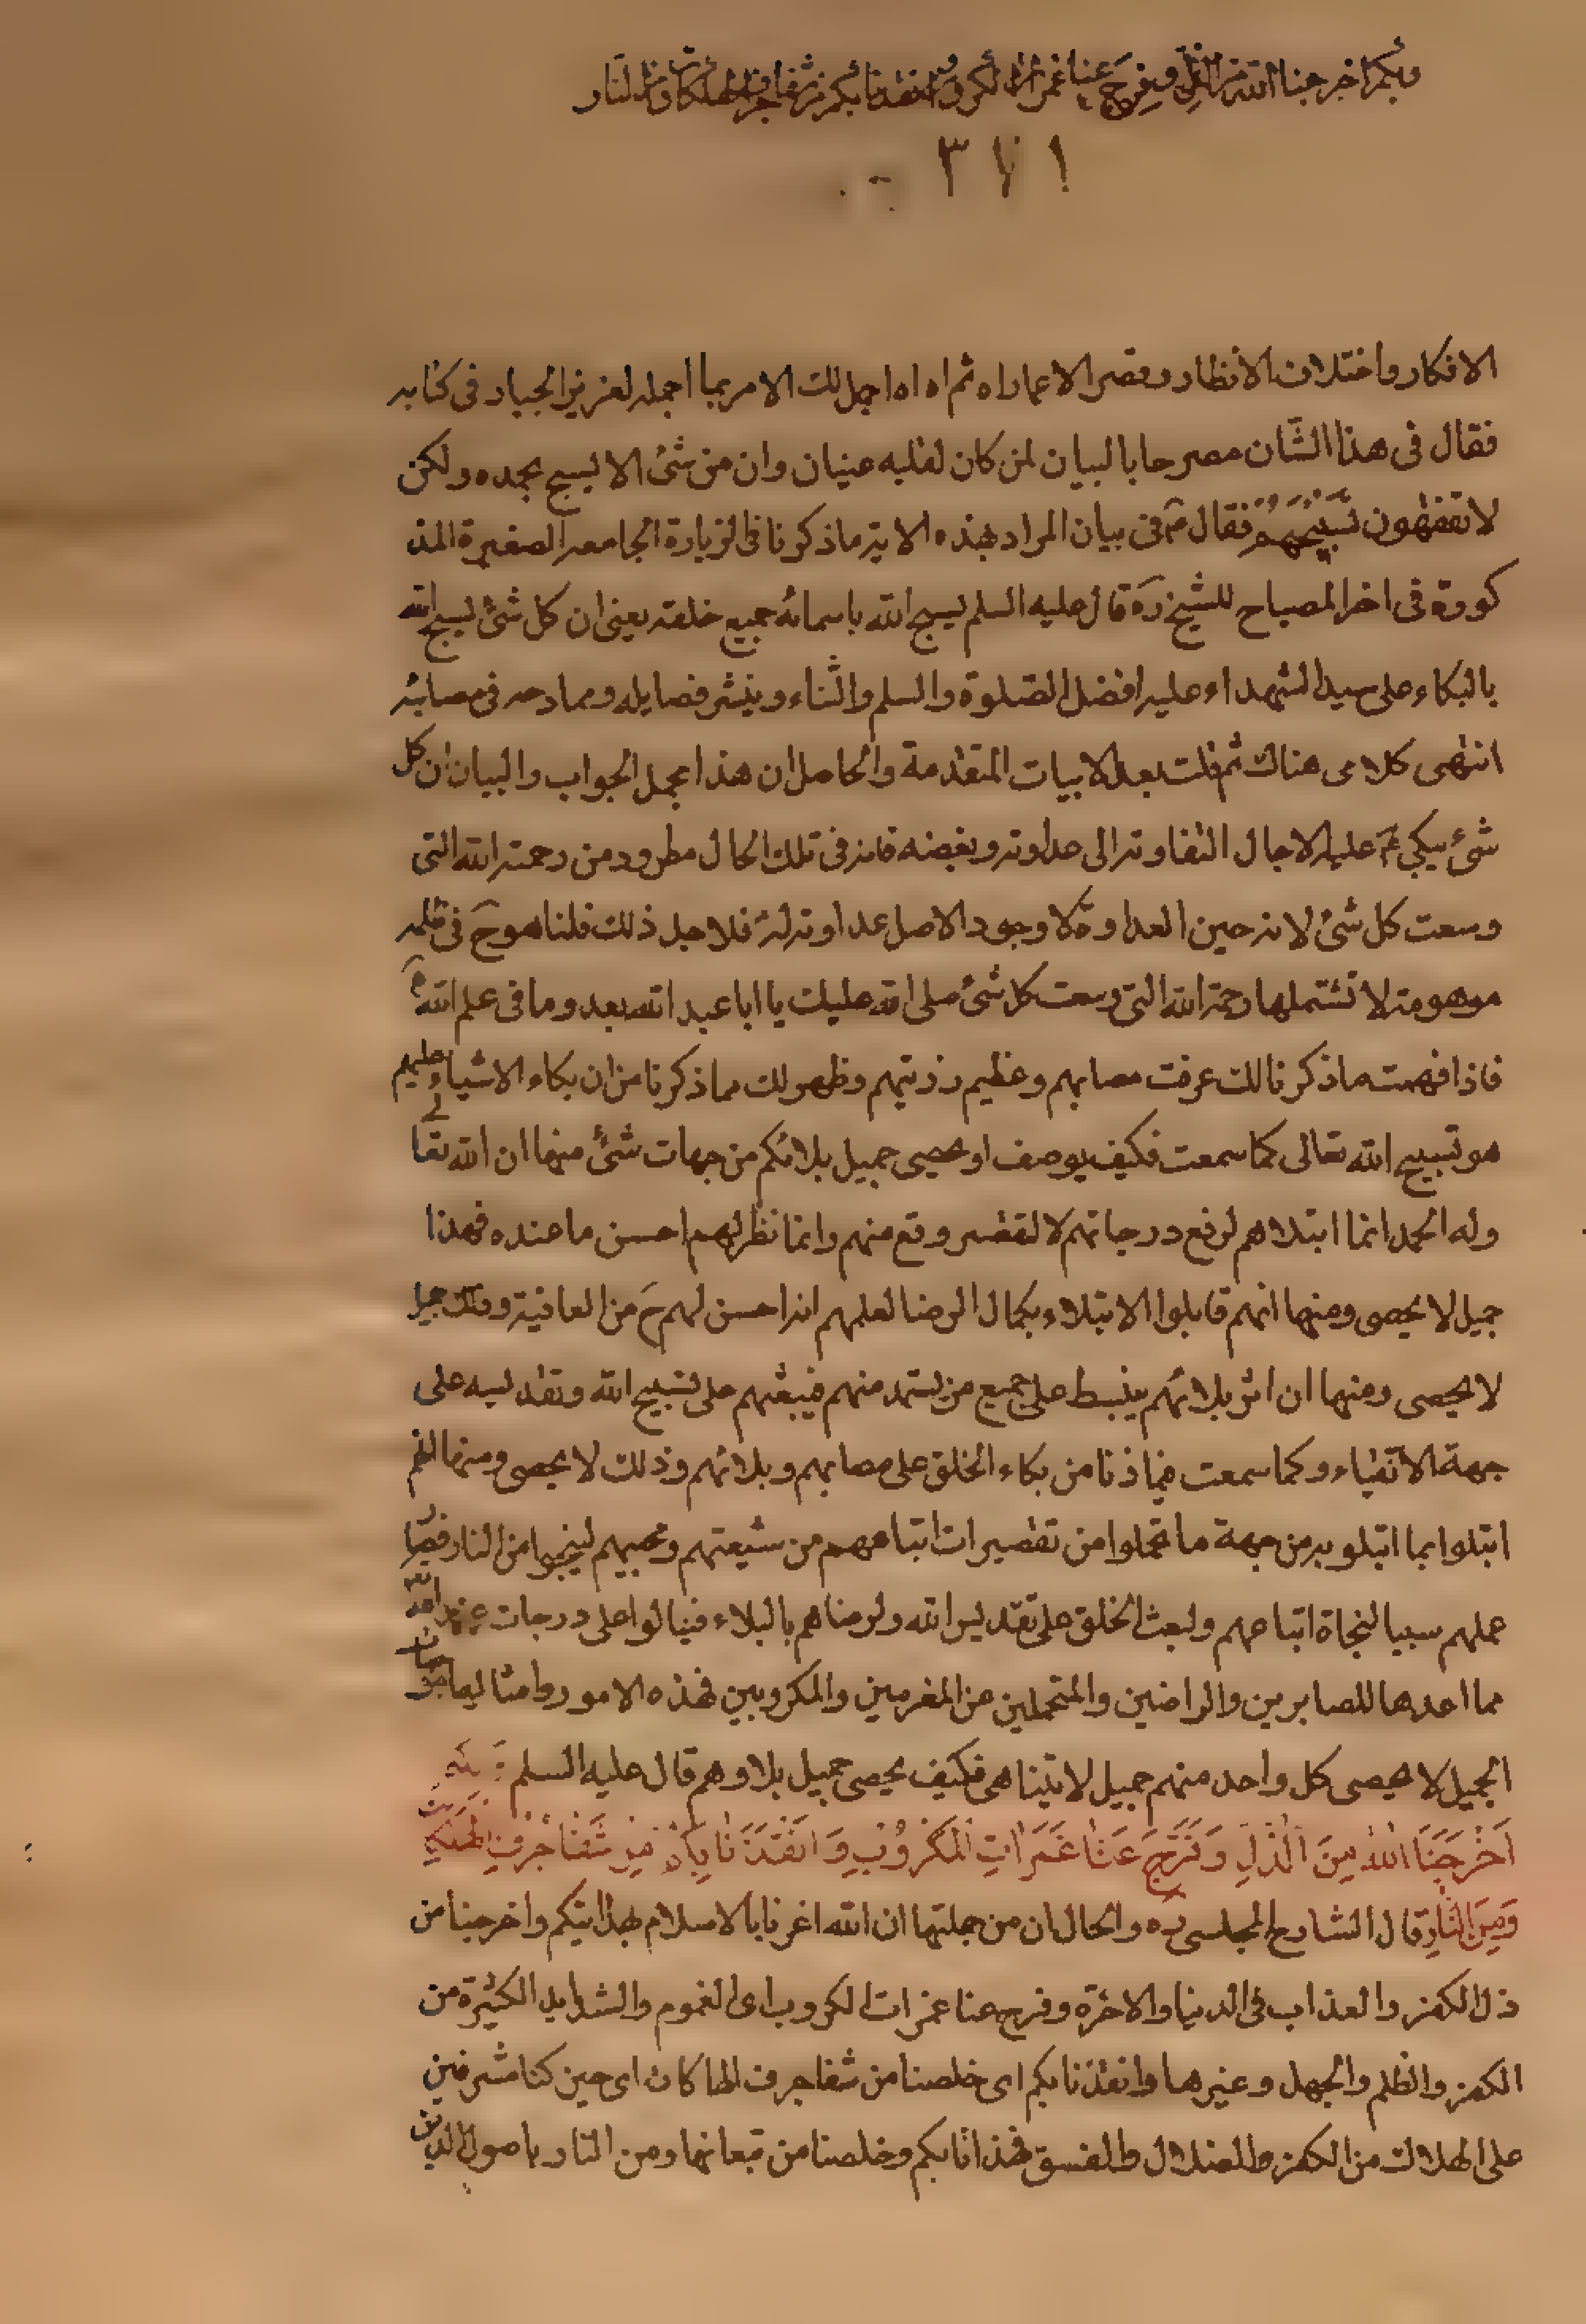 وبكم اخرجنا الله من الذل وفرج عنا غمرات الكروب وانقذنا بكم من شفا جرف الهلكات ومن النار
٣٧١
الافكار واختلاف الانظار وقصر الاعمار اه ثم اه اه اجمل لك الامر بما اجمله العزيز الجبار فى كتابه
فقال فى هذا الشّان مصرحا بالبيان لمن كان لقلبه عينان وان من شئ الا يسبح بحمده ولكن
لا تفقهون تَسْبيحَهُمْ فقال ع فى بيان المراد بهذه الاية ما ذكرنا فى الزيارة الجامعه الصغيرة المذ
كورة فى اخر المصباح للشيخ ره قال عليه السلم يسبح الله باسمائه جميع خلقه يعنى ان كل شئ يسبح الله
بالبكاء على سيد الشهداء عليه افضل الصّلوة والسلم والثّناء وبنشر فضايله وممادحه فى مصائبه
انتهى كلامى هناك ثم قلت بعد الابيات المتقدمة والحاصل ان هذا مجمل الجواب والبيان ان كل
شئ يبكى ع عليه الا حال التفاوته الى عداوته وبغضه فانه فى تلك الحال مطرود من رحمته الله التى
وسعت كل شئ لانه حين العداوة لا وجود الاصل عداوته له فلاجل ذلك قلنا هو ح فى ظلمه
موهومة لا تشتملها رحمة الله التى وسعت كل شئ صلى الله عليك يا ابا عبد الله بعدد ما فى علم الله
فاذا فهمت ما ذكرنا لك عرفت مصابهم وعظيم رزيتهم وظهر لك مما ذكرنا من ان بكاء الاشياء عليهم
هو تسبيح الله تعالى كما سمعت فكيف يوصف او يحصى جميل بلائكم من جهات شئ منها ان الله تعالى
وله الحمد انما ابتلاهم لرفع درجاتهم لا لتقصير وقع منهم وانما نظر لهم احسن ما عنده فهذا
جميل لا يحصى ومنها انهم قابلوا الابتلاء بكمال الرضا لعلمهم انه احسن لهم ح من العافية وذلك جميل
لا يحصى ومنها ان اثر بلائهم ينبسط على جميع من يستمد منهم فيبعثهم على تسبيح الله وتقديسه على
جهة الاتقياء وكما سمعت فيما ذنا من بكاء الخلق على مصابهم وبلائهم وذلك لا يحصى ومنها انهم
ابتلوا بما ابتلو به من جهة ما تحملوا من تقصيرات اتباعهم من شيعتهم ومحبيهم لينجوا من النار فصار
عملهم سببا لنجاة اتباعهم ولبعث الخلق على تقديس الله ولرضاهم بالبلاء فينالوا اعلى درجات عند الله
مما اعدها للصابرين والراضين والمتحملين عن المغرمين والمكروبين فهذه الامور وامثالها من
الجميل لا يحصى كل واحد منهم جميل لا يتناهى فكيف يحصى جميل بلاوهم قال عليه السلم وَبِكُم
اَخْرَجَنَا اللهُ مِنَ الذُّلِّ وَفَرَّجَ عَنَّا غَمَراتِ الْكُرُوبِ وَاَنْقَذَنَا بِكُمْ مِنْ شَفَا جُرُفِ الْهَلَكَاتِ
وَمِنَ النّارِ قال الشارح المجلسى ره والحال ان من جملتها ان الله اعزنا بالاسلام بهدايتكم واخرجنا من
ذل الكفر والعذاب فى الدنيا والاخرة وفرج عنا غمرات الكروب اى الغموم والشدايد الكثيرة من
الكفر والظلم والجهل وغيرها وانقذنا بكم اى خلصنا من شفا جرف الهلكات اى حين كنا مشرفين
على الهلاك من الكفر والضلال والفسق فهدانا بكم وخلصنا من تبعاتها ومن النار باصول الدين